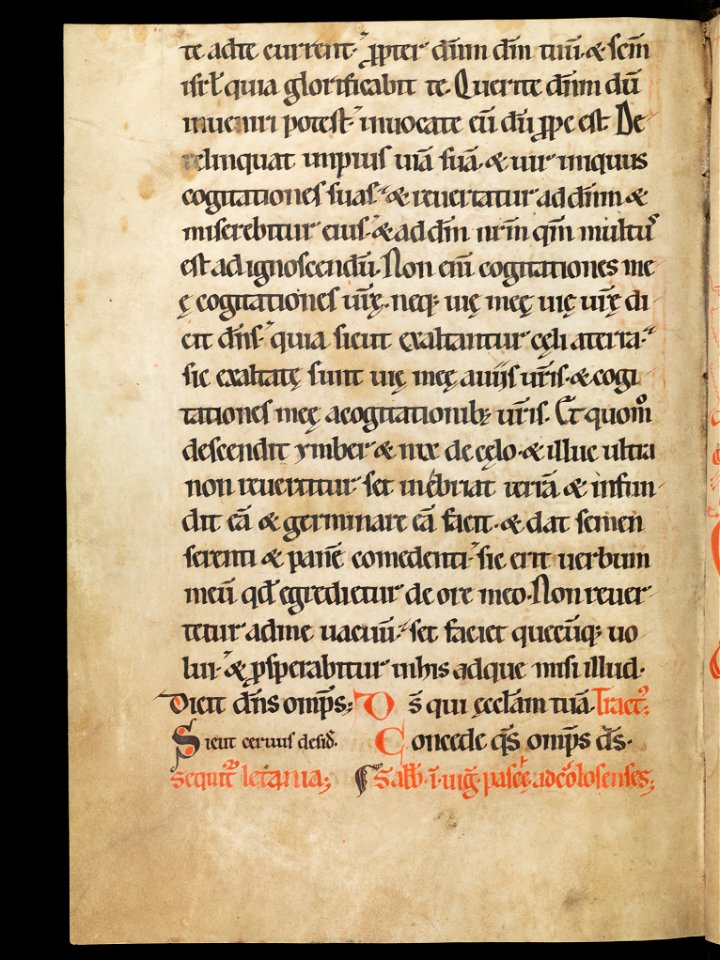 te adte current· ꝓpter dn̄m dm̄ tuū· & scm̄
isrl̄ quia glorificabit te· Querite dn̄m dū
inueniri potest· inuocate eū dū ꝓpe est· De
relinquat impius uiā suā· & uir iniquus
cogitationes suas· & reuertatur ad dn̄m &
miserebitur eius· & ad dm̄ nr̄m qm̄ multuſ
est ad ignoscendū· Non eni͞ cogitationes me
ę cogitationes ur̄ę· neq; uię meę uię ur̄ę di
cit dn̄s· quia sicut exaltantur cęli aterra·
sic exaltatę sunt uię meę auiis ur̄is· & cogi
tationes meę acogitationib; ur̄is· Et quom̊
descendit ymber & nix de cęlo· & illuc ultra
non reuertitur· set inebriat terrā & infun
dit eā & germinare eā facit· & dat semen
serenti & panē comedenti· sic erit uerbum
meū qd̄ egredietur de ore meo· Non reuer
tetur adme uacuū· set faciet quecūq; uo
lui· & ꝓsperabitur inhis adque misi illud·
Dicit dn̄s omp̄s; Ds̄ qui ęcclām tuā· Tract᷒;
Sicut ceruus desid̄· Concede qs̄ omp̄s ds̄·
Sequit᷒ letania; Sabb̄· i· uiḡ· pascę adcolosenses;